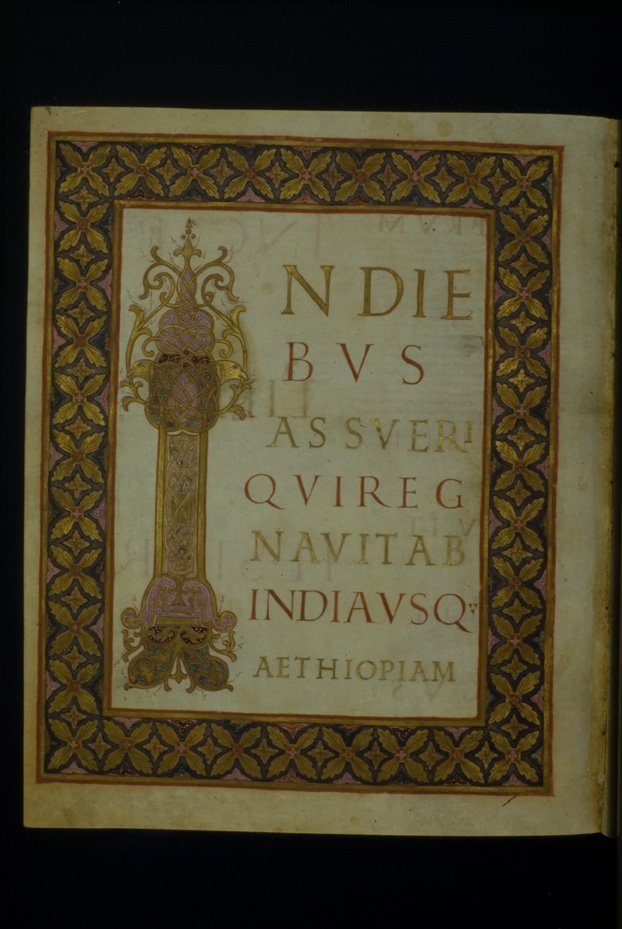 IN DIE
BVS
ASSVERI
QVIREG
NAVITAB
INDIAVSQ:
AETHIOPIAM